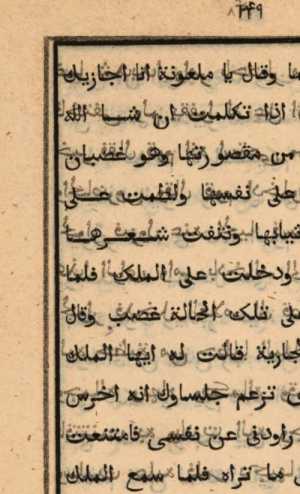 ٢٤٩
وقال يا ملعونة انا اجازيك
اذا تكلمت ان شا الله
من مقصورتها وهو غضبان
على نفسها ولطمت على
ثيابها ونتفت شعرها
ودخلت على الملك فلما
تلك الحالة غضب وقال
قالت له ايها الملك
تزعم جلساوك انه اخرس
راودنى عن نفسى فامتنعت
ما تراه فلما سمع الملك